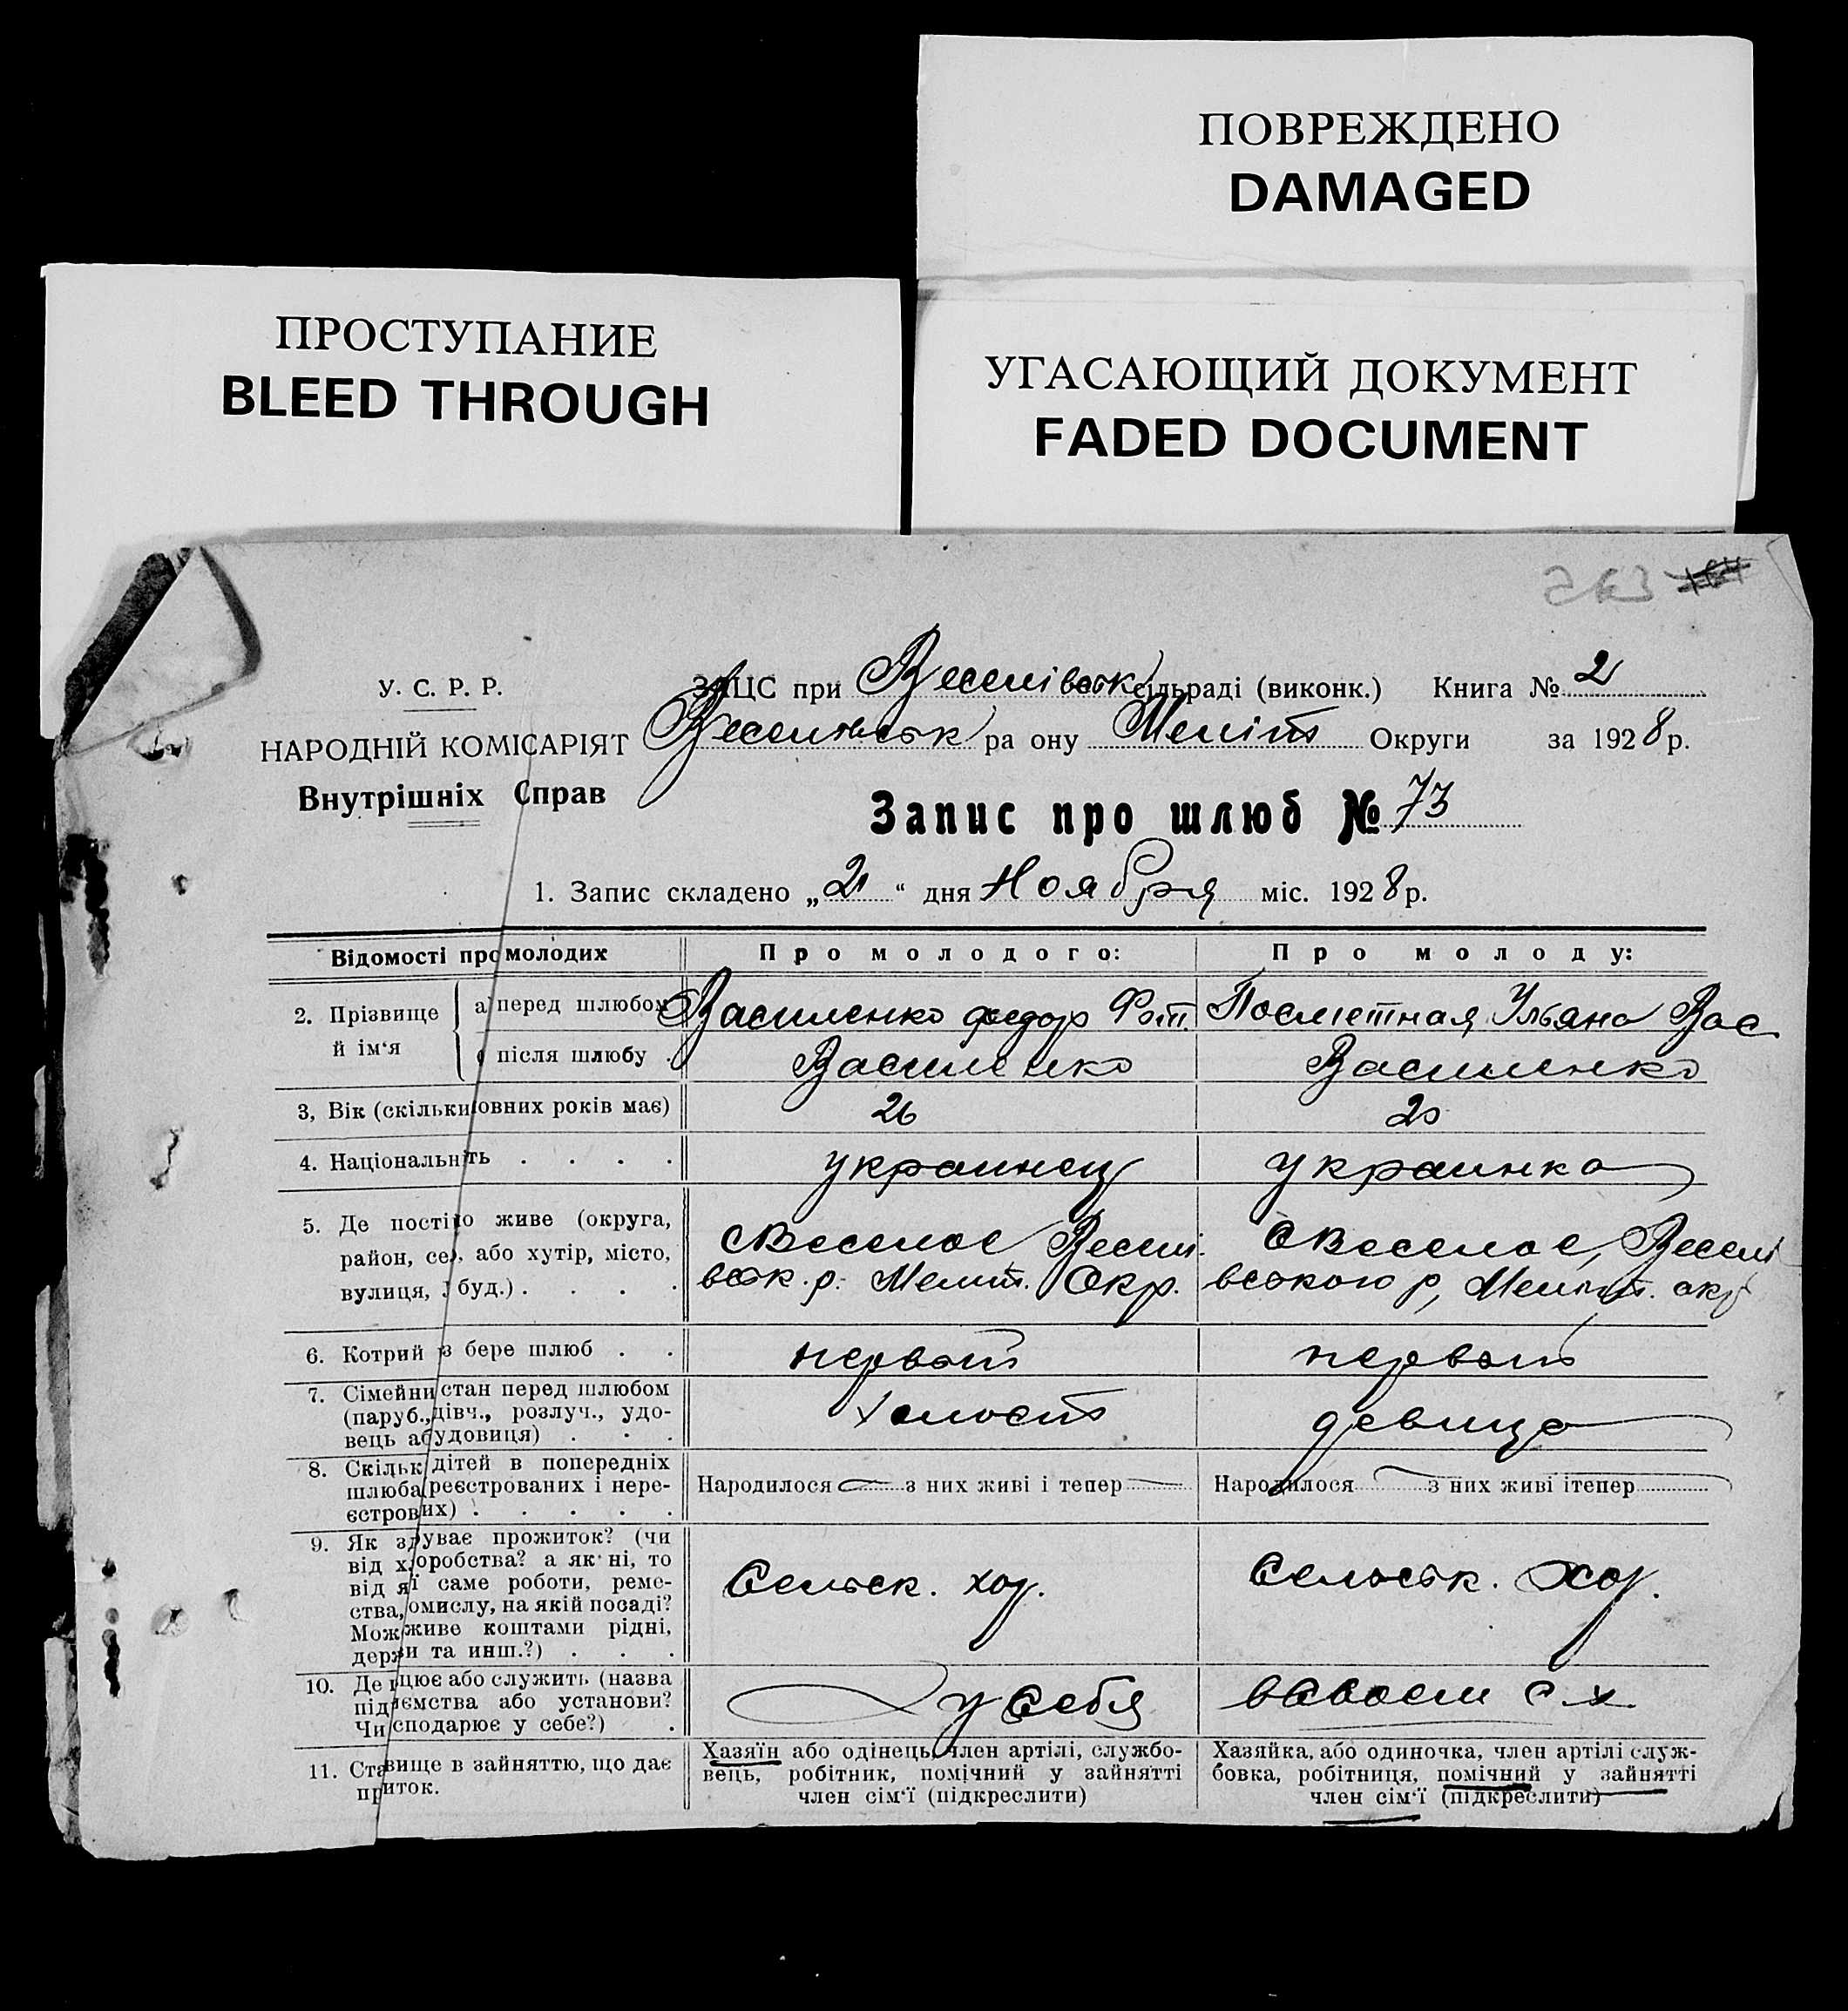 ПОВРЕЖДЕНО
DAMAGED
ПРОСТУПАНИЕ
BLEED THROUGH
УГАСАЮЩИЙ ДОКУМЕНТ
FADED DOCUMENT
263
У. С. Р. Р.
ЗАЦС при Веселівськ сільраді (виконк.) Книга № 2
НАРОДНІЙ КОМІСАРІЯТ
Веселівськ ра ону Меліт Округи за 1928 р.
Внутрішніх Справ
Запис про шлюб № 73
1. Запис складено „2“ дня Ноября міс. 1928 р.
Відомості про молодих
Про молодого:
Про молоду:
2. Прізвище й ім‘я
а перед шлюбом
Василенко федор Фот.
Посметная Ульяна Вас
після шлюбу .
Василенко
Василенко
3, Вік (скільки овних років має)
26
20
4. Національн ть . . . .
украинец
украинка
5. Де пості о живе (округа,
район, се . або хутір, місто,
вулиця, буд.) . . . .
с Веселое Веселі-
вськ. р. Меліт. Окр.
с Веселое, Веселі
вського р, Меліт. окр
6. Котрий з бере шлюб . .
первый
первый
7. Сімейни стан перед шлюбом
(паруб., дівч., розлуч., удо-
вець аб удовиця) . . .
холост
девица
8. Скільк дітей в попередніх
шлюба (реєстрованих і нере-
єстров их) . . . . .
Народилося — з них живі і тепер —
Народилося — з них живі ітепер
9. Як з ує прожиток? (чи
від х оробства? а як ні, то
від я ї саме роботи, реме-
ства, омислу, на якій посаді?
Мож живе коштами рідні,
держ и та инш.?) . . .
Сельск. хоз.
Сельськ. хоз.
10. Де цює або служить (назва
під ємства або установи?
Чи сподарює у себе?) .
у себя
в своем с. х.
11. Ста вище в зайняттю, що дає
пр иток.
Хазяїн або одінець, член артілі, службо-
вець, робітник, помічний у зайнятті
член сім‘ї (підкреслити)
Хазяйка, або одиночка, член артілі служ-
бовка, робітниця, помічний у зайнятті
член сім‘ї (підкреслити)